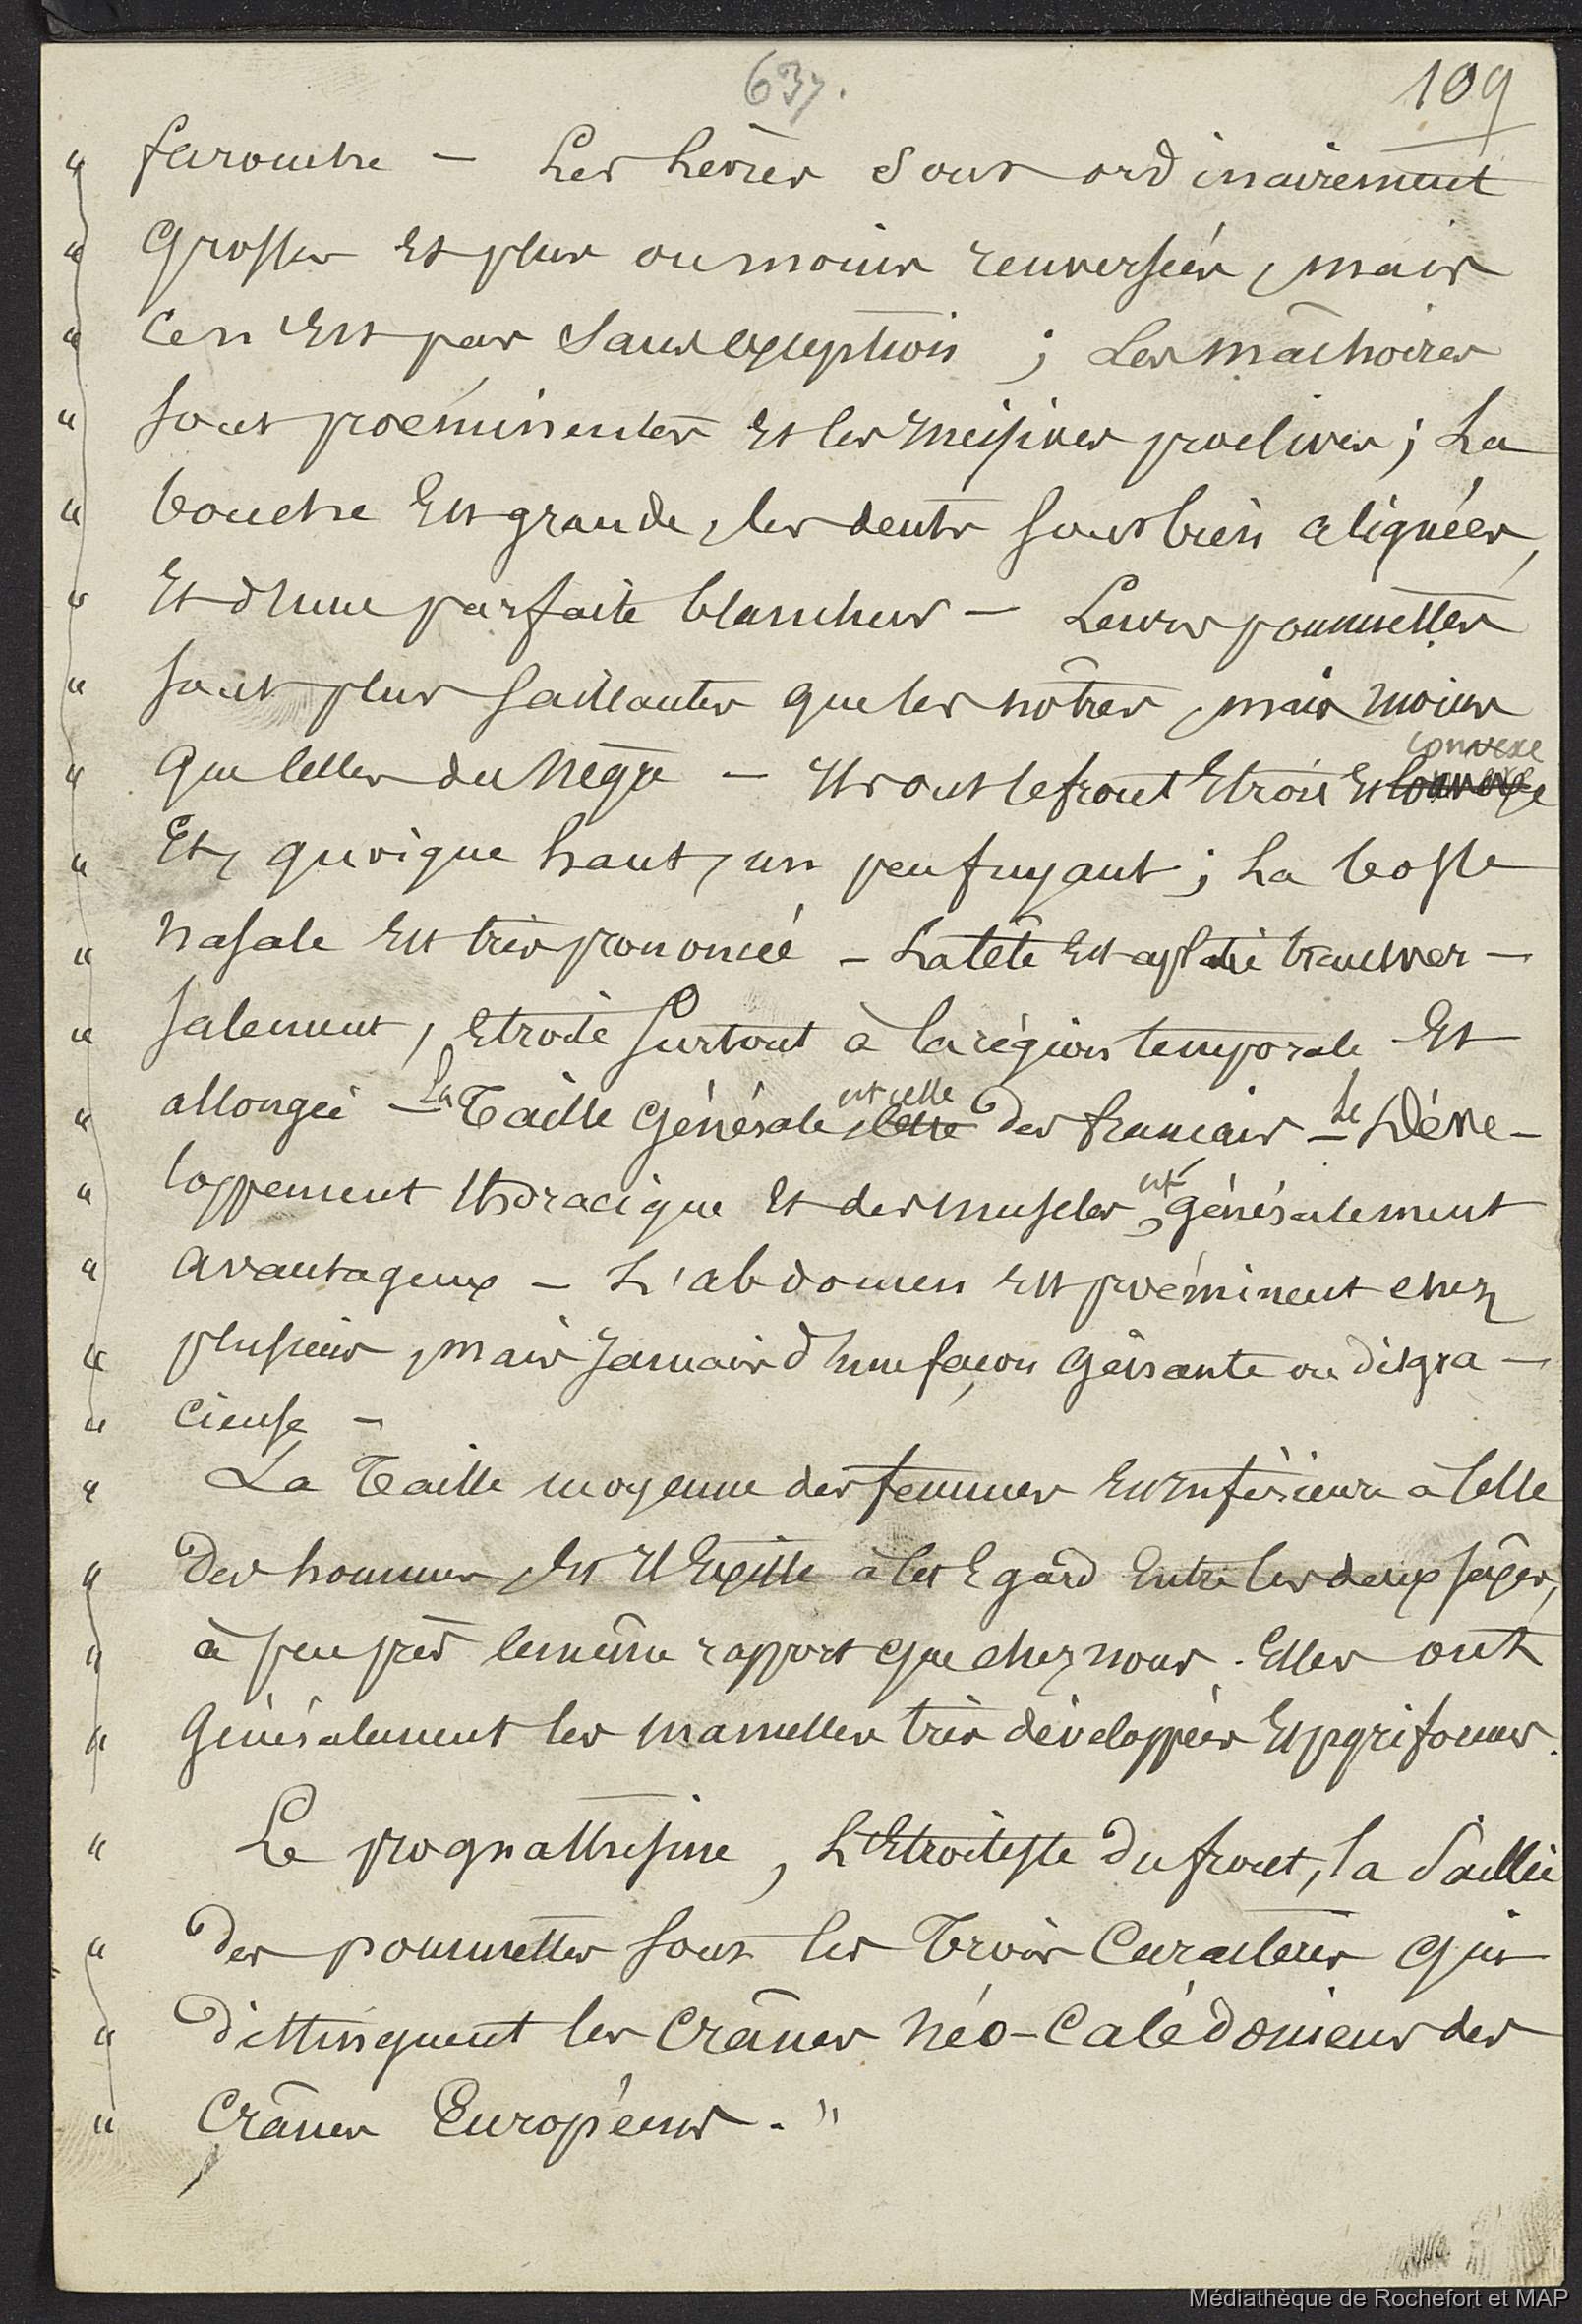 637.
109
" farouche — Les lèvres sont ordinairement
" Grosses et plus ou moins renversées, mais
" ce n'est pas sans exception ; Les mâchoires
" sont proéminentes et les incisives proclives ; La
" bouche est grande, les dents sont bien alignées,
" Et d'une parfaite blancheur — Leurs pommettes
" sont plus saillantes que les nôtres, mais moins
convexe
" que celles du nègre — Ils ont le front Etroit Et convexe
" Et, quoique haut, un peu fuyant ; La bosse
" nasale est très prononcée — La tête est aplatie transver-
" salement, Etroite surtout à la région temporale Et
est celle
" allongée — La Taille Générale, celle des français — Le Déve-
est
" loppement thoracique et des muscles, généralement
" avantageux — L'abdomen est proéminent chez
" plusieurs, mais jamais d'une façon gênante ou disgra-
" cieuse —
" La Taille moyenne des femmes est inférieure à celle
" Des hommes, Et Il Existe à cet Egard Entre les deux sexes,
" à peu près le même rapport que chez nous. Elles ont
" Généralement les mamelles très développées Et pyriformes.
" Le prognathisme, L'Etroitesse du front, la Saillie
" Des pommettes sont les Trois Caractères qui
" distinguent les Crânes Néo-Calédoniens des
" Crânes Européens. "
Médiathèque de Rochefort et MAP